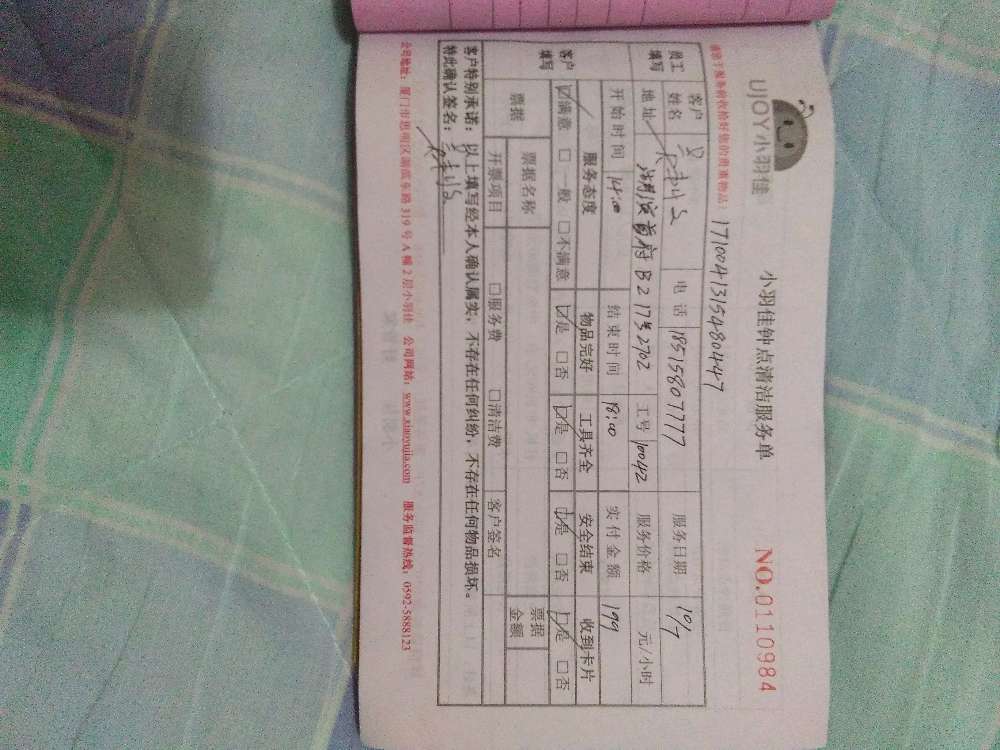 UJOY小羽佳
小羽佳钟点清洁服务单
NO.0110984
请您于服务前收拾好您的贵重物品: 1710041315480447
员工填写 客户姓名 电话 18515807777 服务日期 10/7
地址 湖滨首府B217号2702 工号 10042 服务价格 元/小时
开始时间 14:00 结束时间 18:00 实付金额 199
客户填写 服务态度 物品完好 工具齐全 安全结束 收到卡片
☑满意 □一般 □不满意 ☑是 □否 ☑是 □否 ☑是 □否 ☑是 □否
票据 票据名称 票据金额
开票项目 □服务费 □清洁费 客户签名
客户特别承诺:以上填写经本人确认属实,不存在任何纠纷,不存在任何物品损坏。
特此确认签名:
公司地址:厦门市思明区湖滨东路319号A幢2层小羽佳 公司网站:www.xiaoyujia.com 服务监督热线:0592-5888123